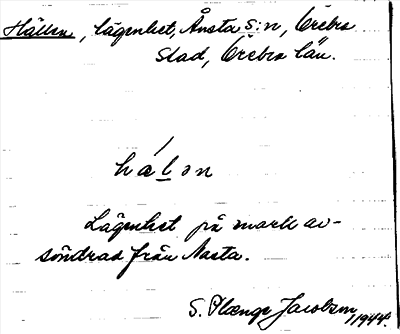 Hällen, lägenhet, Ånsta s:n, Örebro
Stad, Örebro län.
hálon
Lägenhet på mark av-
söndrad från Nasta.
S. Plænge Jacobson, 1944.